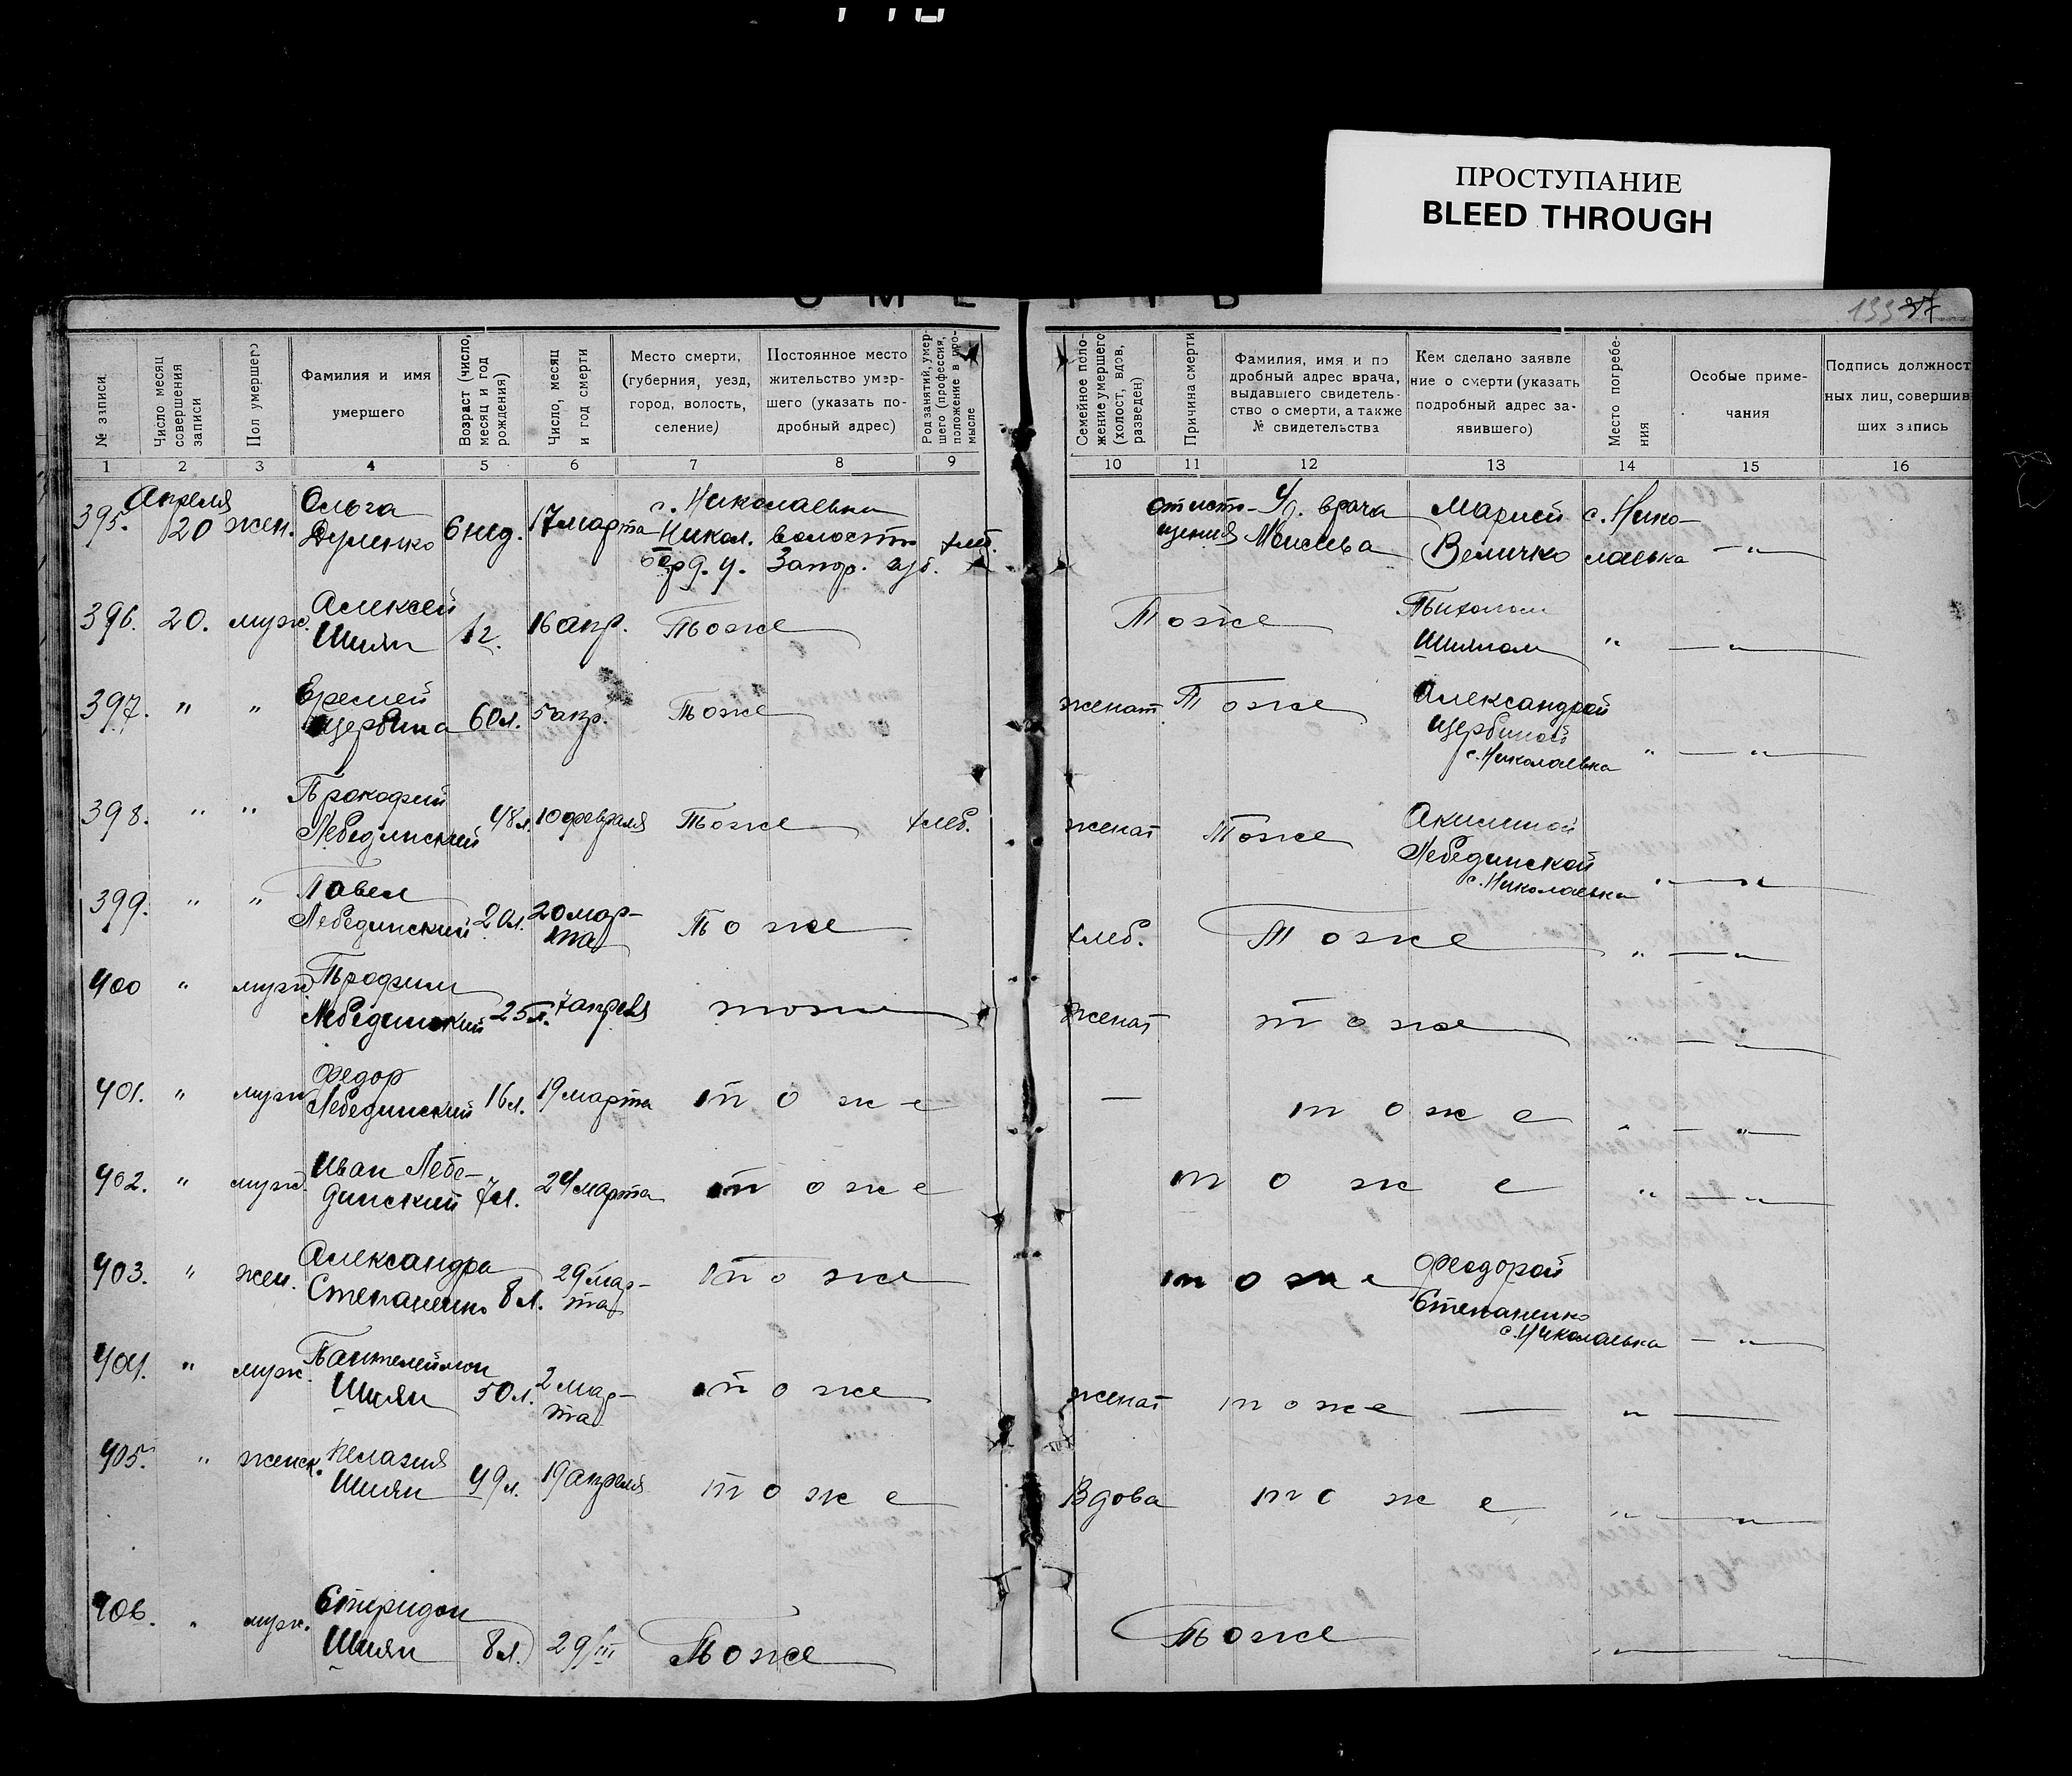 ПРОСТУПАНИЕ
BLEED THROUGH
37
№ записи
Число месяц совершения записи
Пол умершего
Фамилия и имя умершего
Возраст (число, месяц и год рождения)
Число, месяц и год смерти
Место смерти, (губерния, уезд, город, волость, селение)
Постоянное место жительство умершего (указать подробный адрес)
Род занятий, умершего (профессия, положение в промысле
Семейное положение умершего (холост, вдов, разведен)
Причина смерти
Фамилия, имя и подробный адрес врача, выдавшего свидетельство о смерти, а также № свидетельства
Кем сделано заявление о смерти (указать подробный адрес заявившего)
Место погребения
Особые примечания
Подпись должностных лиц, совершивших запись
1 2 3 4 5 6 7 8 9 10 11 12 13 14 15 16
395. Апреля 20 жен. Ольга Думенко 6 нед. 17 марта с. Николаевка Никол. волости Берд. у. Запор. губ. хлеб. от истощения Уч. врача Марией Величко с. Николаевка — " —
396. 20. муж. Алексей Шиян 1 г. 16 апр. Тоже Тоже Тихоном Шияном " — " —
397. " " Еремей Щербина 60 л. 5 апр. Тоже женат Тоже Александрой Щербиной с. Николаевка " — " —
398. " " Прокофий Лебединский 48 л. 10 февраля Тоже хлеб. женат Тоже Акилиной Лебединской с. Николаевка " — " —
399. " " Павел Лебединский 20 л. 20 марта Тоже хлеб. Тоже " — " —
400 " муж Трофим Лебединский 25 л. 7 апреля тоже женат тоже " — " —
401. " муж Федор Лебединский 16 л. 19 марта тоже — тоже " — " —
402. " муж. Иван Лебединский 7 л. 24 марта тоже тоже " — " —
403. " жен. Александра Степаненко 8 л. 29 марта тоже тоже Феодорой Степаненко с. Николаевка — " —
404. " муж. Пантелеймон Шиян 50 л. 2 марта тоже женат тоже — " —
405. " женск. Пелагия Шиян 49 л. 19 апреля тоже Вдова тоже " — " —
406. " муж. Спиридон Шиян 8 л. 29/III Тоже Тоже " — " —